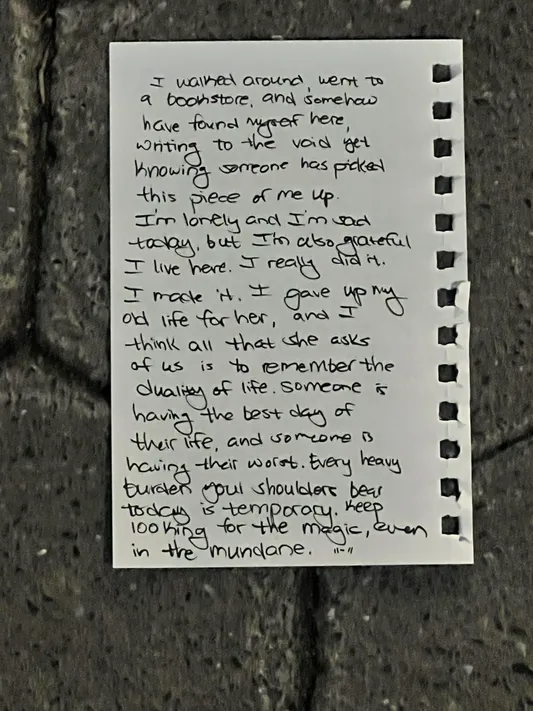 I walked around, went to
a bookstore, and somehow
have found myself here,
writing to the void yet
knowing someone has picked
this piece of me up.
I'm lonely and I'm sad
today, but I'm also grateful
I live here. I really did it.
I made it. I gave up my
old life for her, and I
think all that she asks
of us is to remember the
duality of life. Someone is
having the best day of
their life, and someone is
having their worst. Every heavy
burden your shoulders bear
today is temporary. Keep
looking for the magic, even
in the mundane. "-"